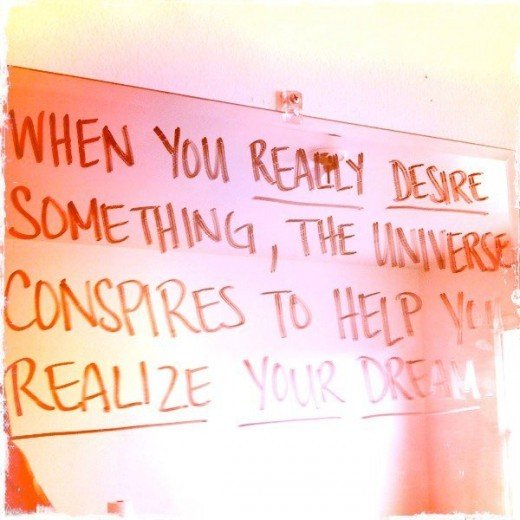 WHEN YOU REALLY DESIRE
SOMETHING, THE UNIVERSE
CONSPIRES TO HELP YOU
REALIZE YOUR DREAM